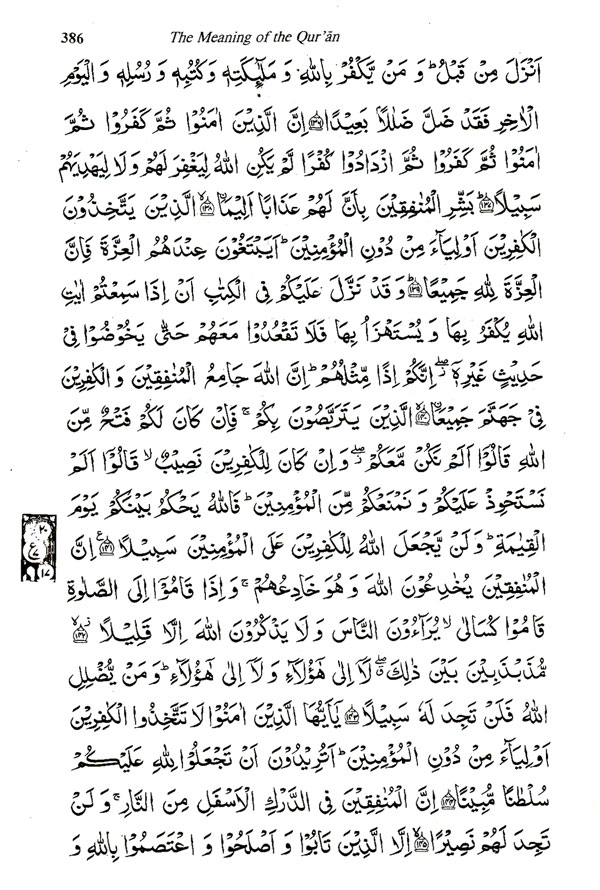 386 The Meaning of the Qur'ān
اَنْزَلَ مِنْ قَبْلُ ؕ وَ مَنْ يَّكْفُرْ بِاللّٰهِ وَ مَلٰٓئِكَتِهٖ وَ كُتُبِهٖ وَ رُسُلِهٖ وَ الْيَوْمِ
الْاٰخِرِ فَقَدْ ضَلَّ ضَلٰلًۢا بَعِيْدًا ﴿۱۳۶﴾ اِنَّ الَّذِيْنَ اٰمَنُوْا ثُمَّ كَفَرُوْا ثُمَّ
اٰمَنُوْا ثُمَّ كَفَرُوْا ثُمَّ ازْدَادُوْا كُفْرًا لَّمْ يَكُنِ اللّٰهُ لِيَغْفِرَ لَهُمْ وَ لَا لِيَهْدِيَهُمْ
سَبِيْلًا ﴿۱۳۷﴾ بَشِّرِ الْمُنٰفِقِيْنَ بِاَنَّ لَهُمْ عَذَابًا اَلِيْمَا ﴿۱۳۸﴾ ۙ الَّذِيْنَ يَتَّخِذُوْنَ
الْكٰفِرِيْنَ اَوْلِيَآءَ مِنْ دُوْنِ الْمُؤْمِنِيْنَ ؕ اَيَبْتَغُوْنَ عِنْدَهُمُ الْعِزَّةَ فَاِنَّ
الْعِزَّةَ لِلّٰهِ جَمِيْعًا ﴿۱۳۹﴾ ؕ وَ قَدْ نَزَّلَ عَلَيْكُمْ فِي الْكِتٰبِ اَنْ اِذَا سَمِعْتُمْ اٰيٰتِ
اللّٰهِ يُكْفَرُ بِهَا وَ يُسْتَهْزَاُ بِهَا فَلَا تَقْعُدُوْا مَعَهُمْ حَتّٰى يَخُوْضُوْا فِيْ
حَدِيْثٍ غَيْرِهٖۤ ۖ اِنَّكُمْ اِذًا مِّثْلُهُمْ ؕ اِنَّ اللّٰهَ جَامِعُ الْمُنٰفِقِيْنَ وَ الْكٰفِرِيْنَ
فِيْ جَهَنَّمَ جَمِيْعَا ﴿۱۴۰﴾ ۙ الَّذِيْنَ يَتَرَبَّصُوْنَ بِكُمْ ۚ فَاِنْ كَانَ لَكُمْ فَتْحٌ مِّنَ
اللّٰهِ قَالُوْۤا اَلَمْ نَكُنْ مَّعَكُمْ ۖ وَ اِنْ كَانَ لِلْكٰفِرِيْنَ نَصِيْبٌ ۙ قَالُوْۤا اَلَمْ
نَسْتَحْوِذْ عَلَيْكُمْ وَ نَمْنَعْكُمْ مِّنَ الْمُؤْمِنِيْنَ ؕ فَاللّٰهُ يَحْكُمُ بَيْنَكُمْ يَوْمَ
الْقِيٰمَةِ ؕ وَ لَنْ يَّجْعَلَ اللّٰهُ لِلْكٰفِرِيْنَ عَلَى الْمُؤْمِنِيْنَ سَبِيْلًا ﴿۱۴۱﴾ ع اِنَّ
الْمُنٰفِقِيْنَ يُخٰدِعُوْنَ اللّٰهَ وَ هُوَ خَادِعُهُمْ ۚ وَ اِذَا قَامُوْۤا اِلَى الصَّلٰوةِ
قَامُوْا كُسَالٰى ۙ يُرَآءُوْنَ النَّاسَ وَ لَا يَذْكُرُوْنَ اللّٰهَ اِلَّا قَلِيْلًا ﴿۱۴۲﴾ ۙ
مُّذَبْذَبِيْنَ بَيْنَ ذٰلِكَ ۖ لَاۤ اِلٰى هٰۤؤُلَآءِ وَ لَاۤ اِلٰى هٰۤؤُلَآءِ ؕ وَ مَنْ يُّضْلِلِ
اللّٰهُ فَلَنْ تَجِدَ لَهٗ سَبِيْلًا ﴿۱۴۳﴾ يٰۤاَيُّهَا الَّذِيْنَ اٰمَنُوْا لَا تَتَّخِذُوا الْكٰفِرِيْنَ
اَوْلِيَآءَ مِنْ دُوْنِ الْمُؤْمِنِيْنَ ؕ اَتُرِيْدُوْنَ اَنْ تَجْعَلُوْا لِلّٰهِ عَلَيْكُمْ
سُلْطٰنًا مُّبِيْنًا ﴿۱۴۴﴾ اِنَّ الْمُنٰفِقِيْنَ فِي الدَّرْكِ الْاَسْفَلِ مِنَ النَّارِ ۚ وَ لَنْ
تَجِدَ لَهُمْ نَصِيْرًا ﴿۱۴۵﴾ اِلَّا الَّذِيْنَ تَابُوْا وَ اَصْلَحُوْا وَ اعْتَصَمُوْا بِاللّٰهِ وَ